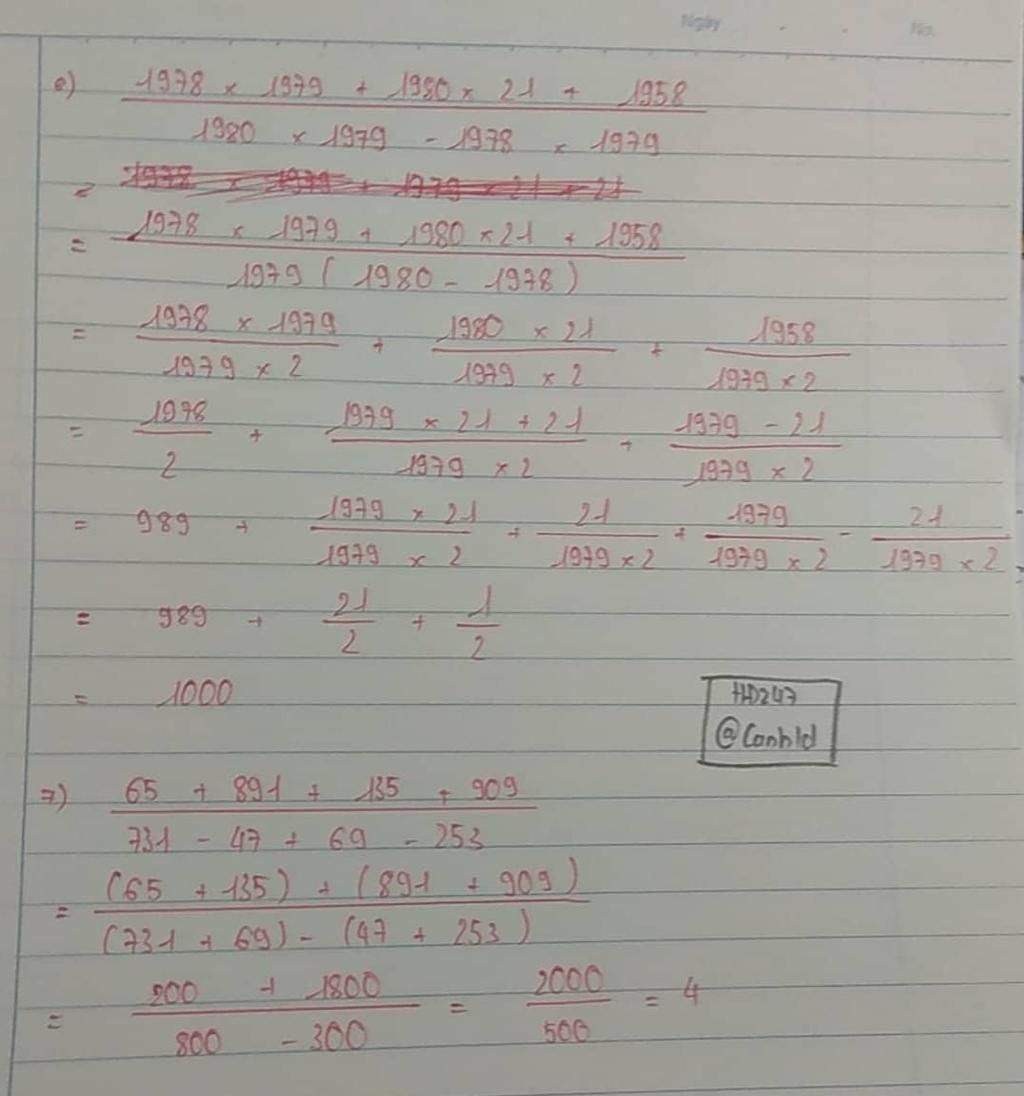 Ngày - - No.
e) (1978 × 1979 + 1980 × 21 + 1958) / (1980 × 1979 - 1978 × 1979)
= 1978 × 1979 + 1979 × 21 + 21
= (1978 × 1979 + 1980 × 21 + 1958) / (1979 (1980 - 1978))
= (1978 × 1979) / (1979 × 2) + (1980 × 21) / (1979 × 2) + 1958 / (1979 × 2)
= 1978 / 2 + (1979 × 21 + 21) / (1979 × 2) + (1979 - 21) / (1979 × 2)
= 989 + (1979 × 21) / (1979 × 2) + 21 / (1979 × 2) + 1979 / (1979 × 2) - 21 / (1979 × 2)
= 989 + 21 / 2 + 1 / 2
= 1000
HD247
@Conhld
7) (65 + 891 + 135 + 909) / (731 - 47 + 69 - 253)
= ((65 + 135) + (891 + 909)) / ((731 + 69) - (47 + 253))
= (200 + 1800) / (800 - 300) = 2000 / 500 = 4